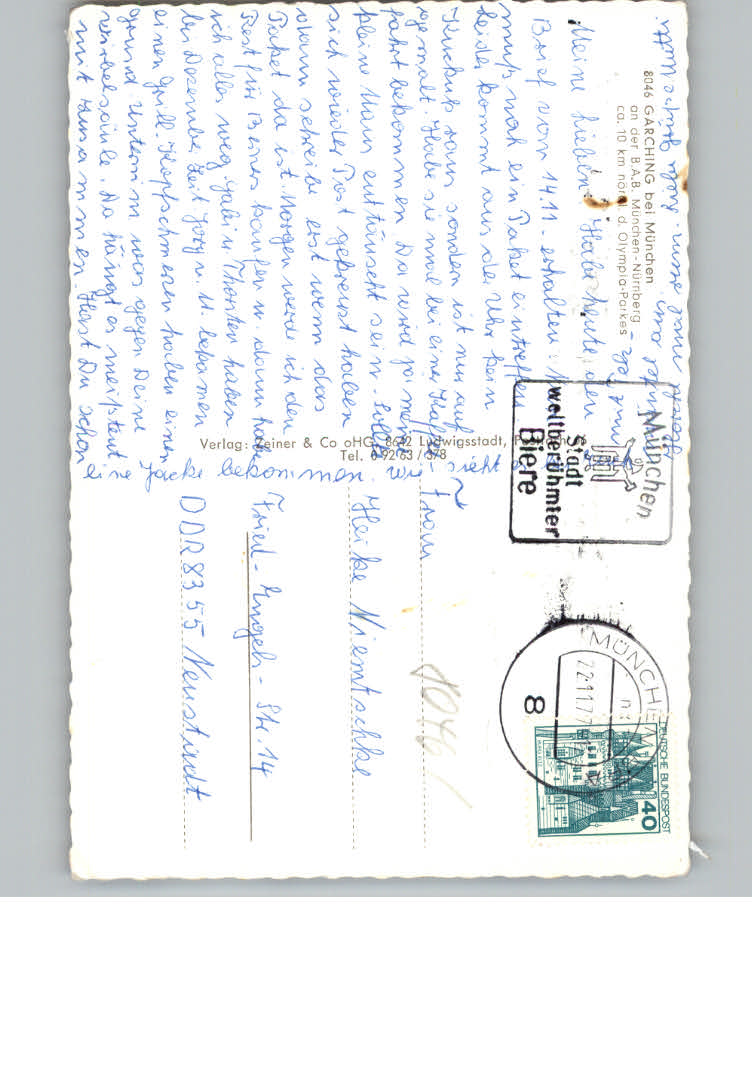 8046 GARCHING bei München
an der B.A.B. München-Nürnberg
ca. 10 km nördl. d. Olympia-Parkes
Meine Lieben! Habe heute den
Brief vom 14.11. erhalten.
muß noch ein Paket eintreffen
leider kommt aus der Uhr kein
Kuckuck raus sondern ist nur auf-
gemalt. Habe sie mal bei einer Kaffee-
fahrt bekommen. Da wird ja mein
kleine Mann enttäuscht sein.
sich wieder Post gefreut haben
dann schreibe erst wenn das
Paket da ist. Morgen werde ich den
Rest für Benes kaufen u. dann
ich alles weg. Gabi u. Thorsten haben
im Dezember Zeit Jörg u. U. bekamen
einen Grill. Kopfschmerzen haben einen
Grund Unterm war gegen Deine
Wirbelsäule. Da hängt es meistens
mit zusammen. Hast Du schon
eine Jacke bekommen. Wie sieht
Verlag: Zeiner & Co oHG, 8642 Ludwigsstadt,
Tel. 0 92 63 / 378
München
Stadt
weltberühmter
Biere
MÜNCHE
22.11.77
8
DEUTSCHE BUNDESPOST
40
Frau
Heike Niemtschke
Fried.-Engels-Str. 14
DDR 8355 Neustadt